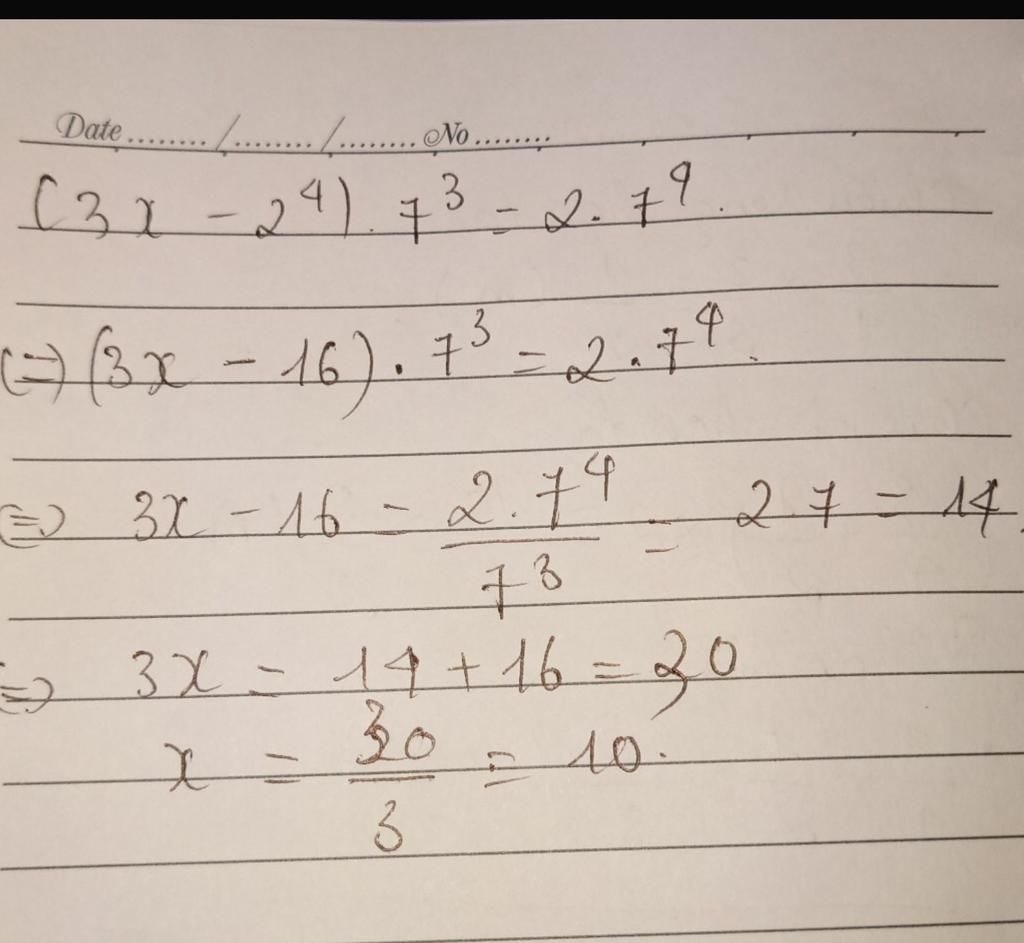 Date......../......../........No........
(3x - 2⁴). 7³ = 2. 7⁴.
(=) (3x - 16) . 7³ = 2 . 7⁴.
(=) 3x - 16 = 2.7⁴/7³ = 2.7 = 14.
(=) 3x = 14 + 16 = 30
x = 30/3 = 10.